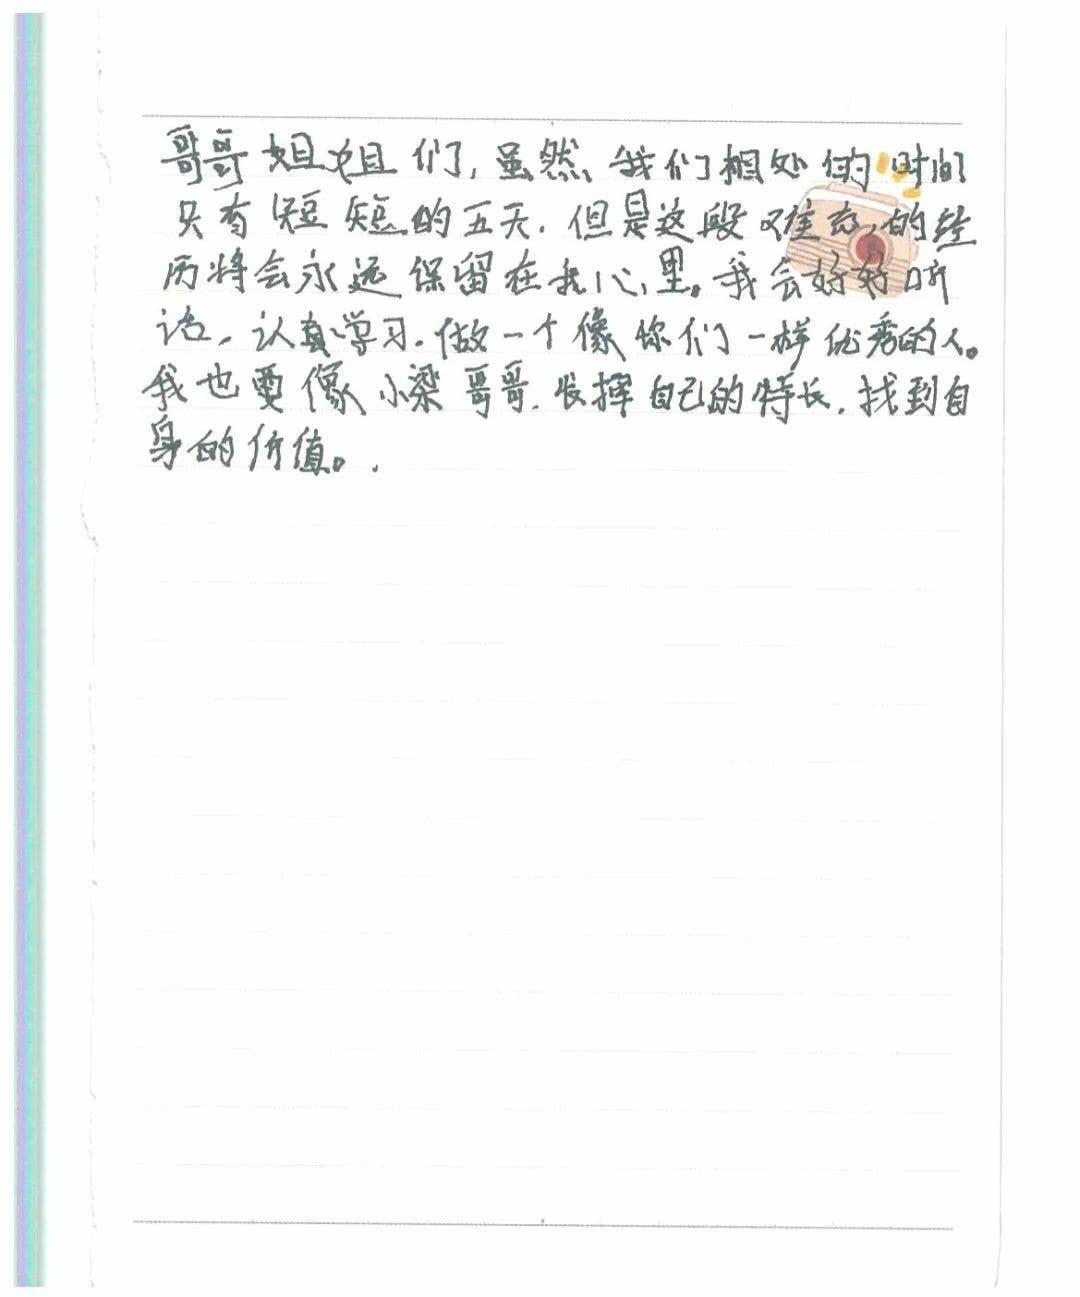 哥哥姐姐们，虽然我们相处的时间
只有短短的五天，但是这段难忘的经
历将会永远保留在我心里。我会好好听
话，认真学习，做一个像你们一样优秀的人。
我也要像小梁哥哥，发挥自己的特长，找到自
身的价值。